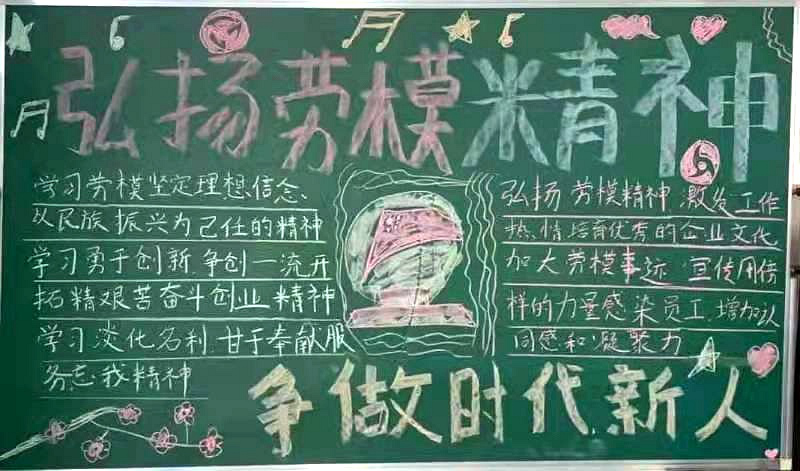 弘扬劳模精神
学习劳模坚定理想信念、
以民族振兴为己任的精神
学习勇于创新,争创一流开
拓精艰苦奋斗创业精神
学习淡化名利,甘于奉献服
务忘我精神
弘扬劳模精神激发工作
热情培育优秀的企业文化
加大劳模事迹宣传用榜
样的力量感染员工,增加认
同感和凝聚力
争做时代新人